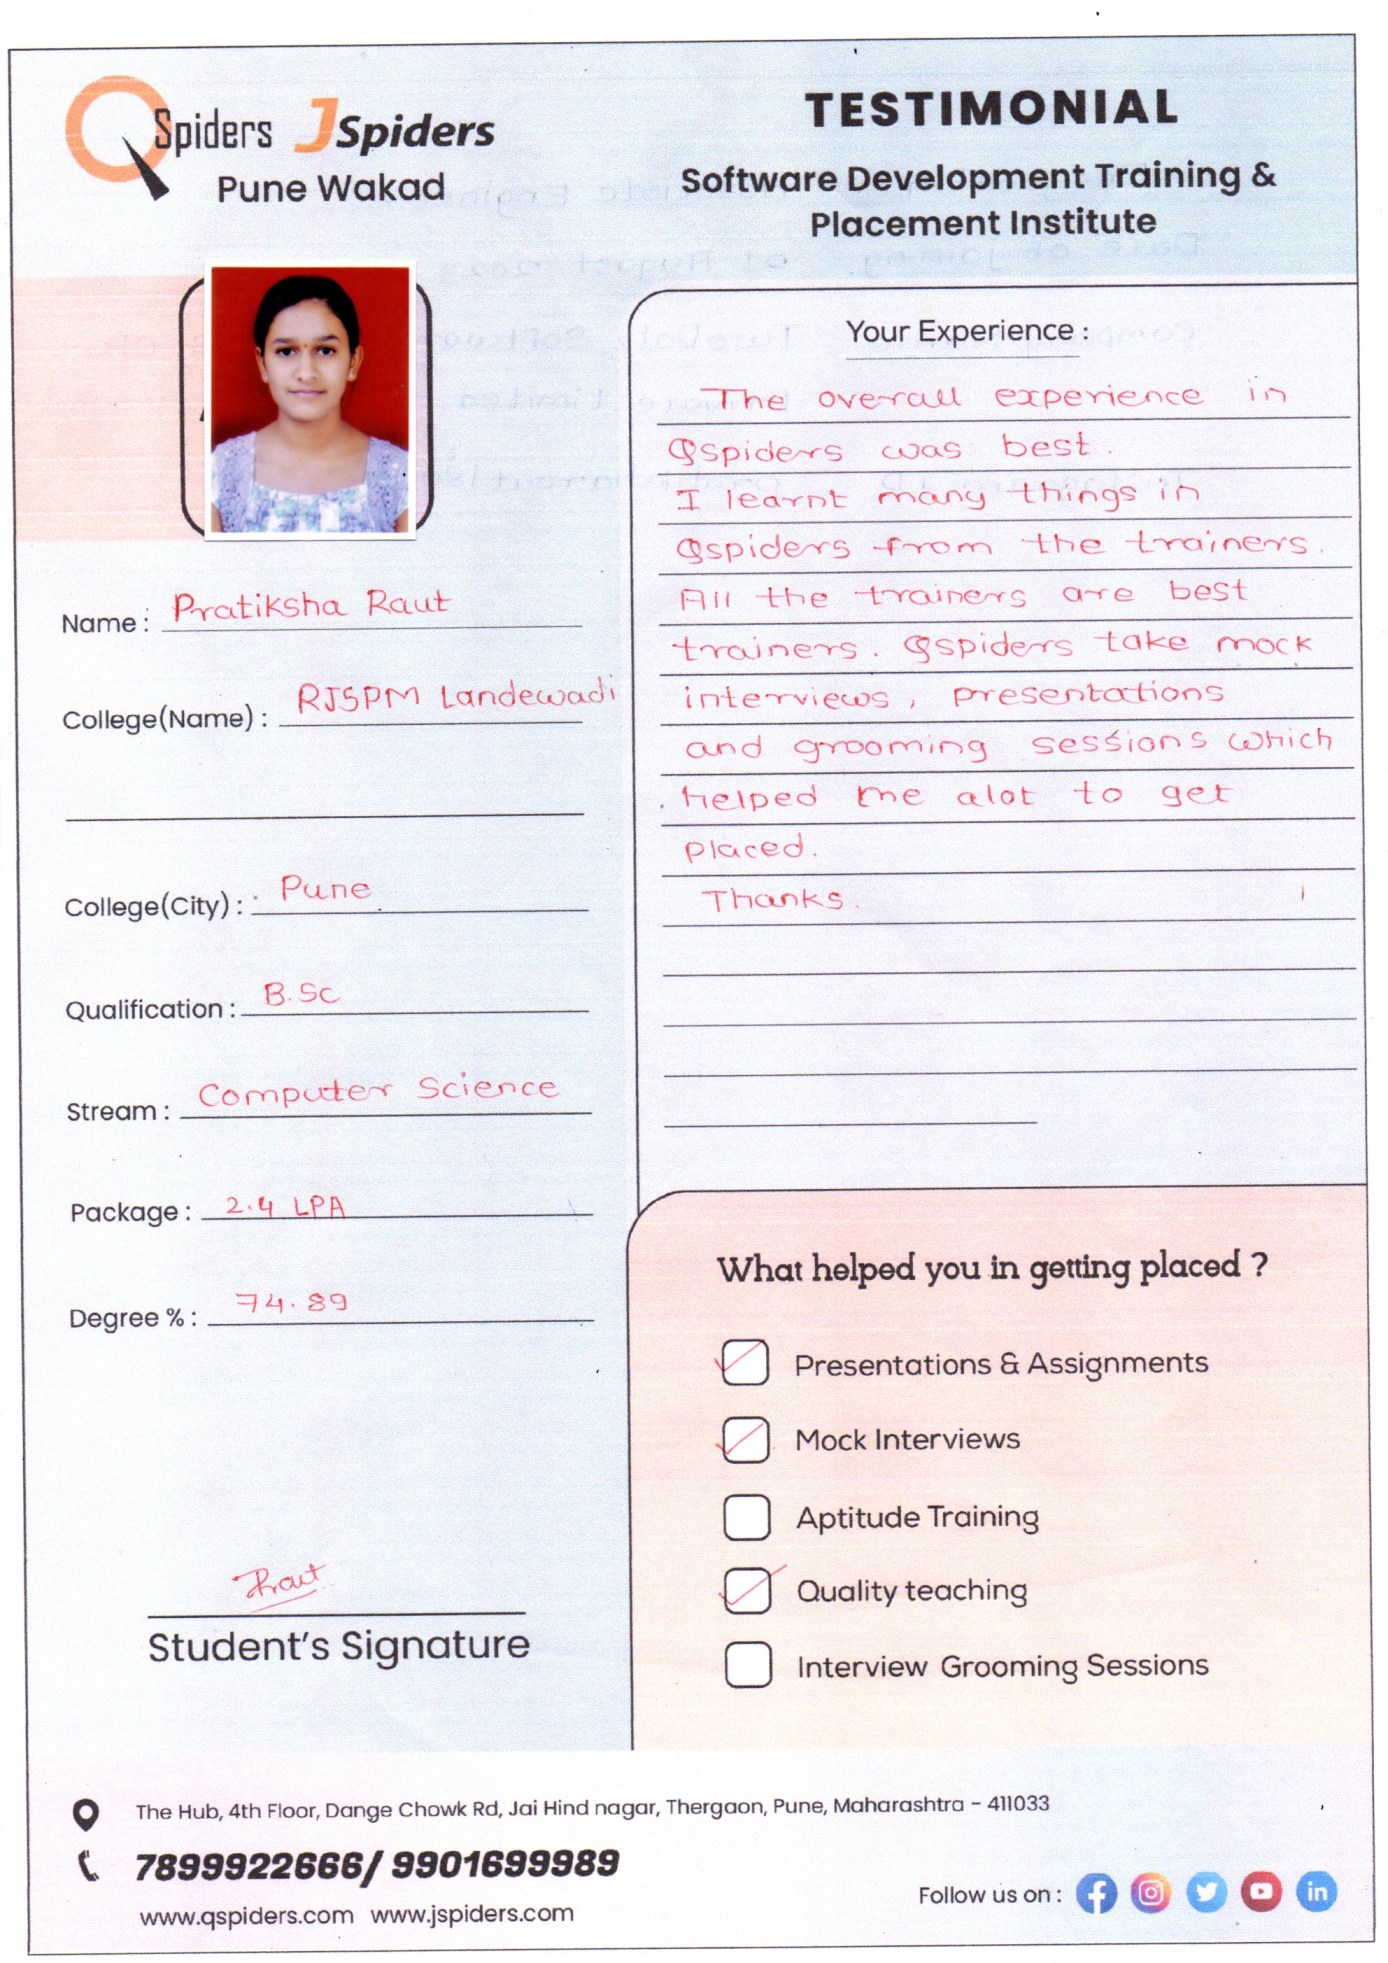 QSpiders JSpiders
Pune Wakad
TESTIMONIAL
Software Development Training &
Placement Institute
Name : Pratiksha Raut
College(Name) : RJSPM Landewadi
College(City) : Pune
Qualification : B.Sc
Stream : Computer Science
Package : 2.4 LPA
Degree % : 74.89
Raut
Student's Signature
Your Experience :
The overall experience in
Qspiders was best.
I learnt many things in
Qspiders from the trainers.
All the trainers are best
trainers. Qspiders take mock
interviews, presentations
and grooming sessions which
helped me alot to get
placed.
Thanks.
What helped you in getting placed ?
Presentations & Assignments
Mock Interviews
Aptitude Training
Quality teaching
Interview Grooming Sessions
The Hub, 4th Floor, Dange Chowk Rd, Jai Hind nagar, Thergaon, Pune, Maharashtra - 411033
7899922666/ 9901699989
www.qspiders.com www.jspiders.com
Follow us on :